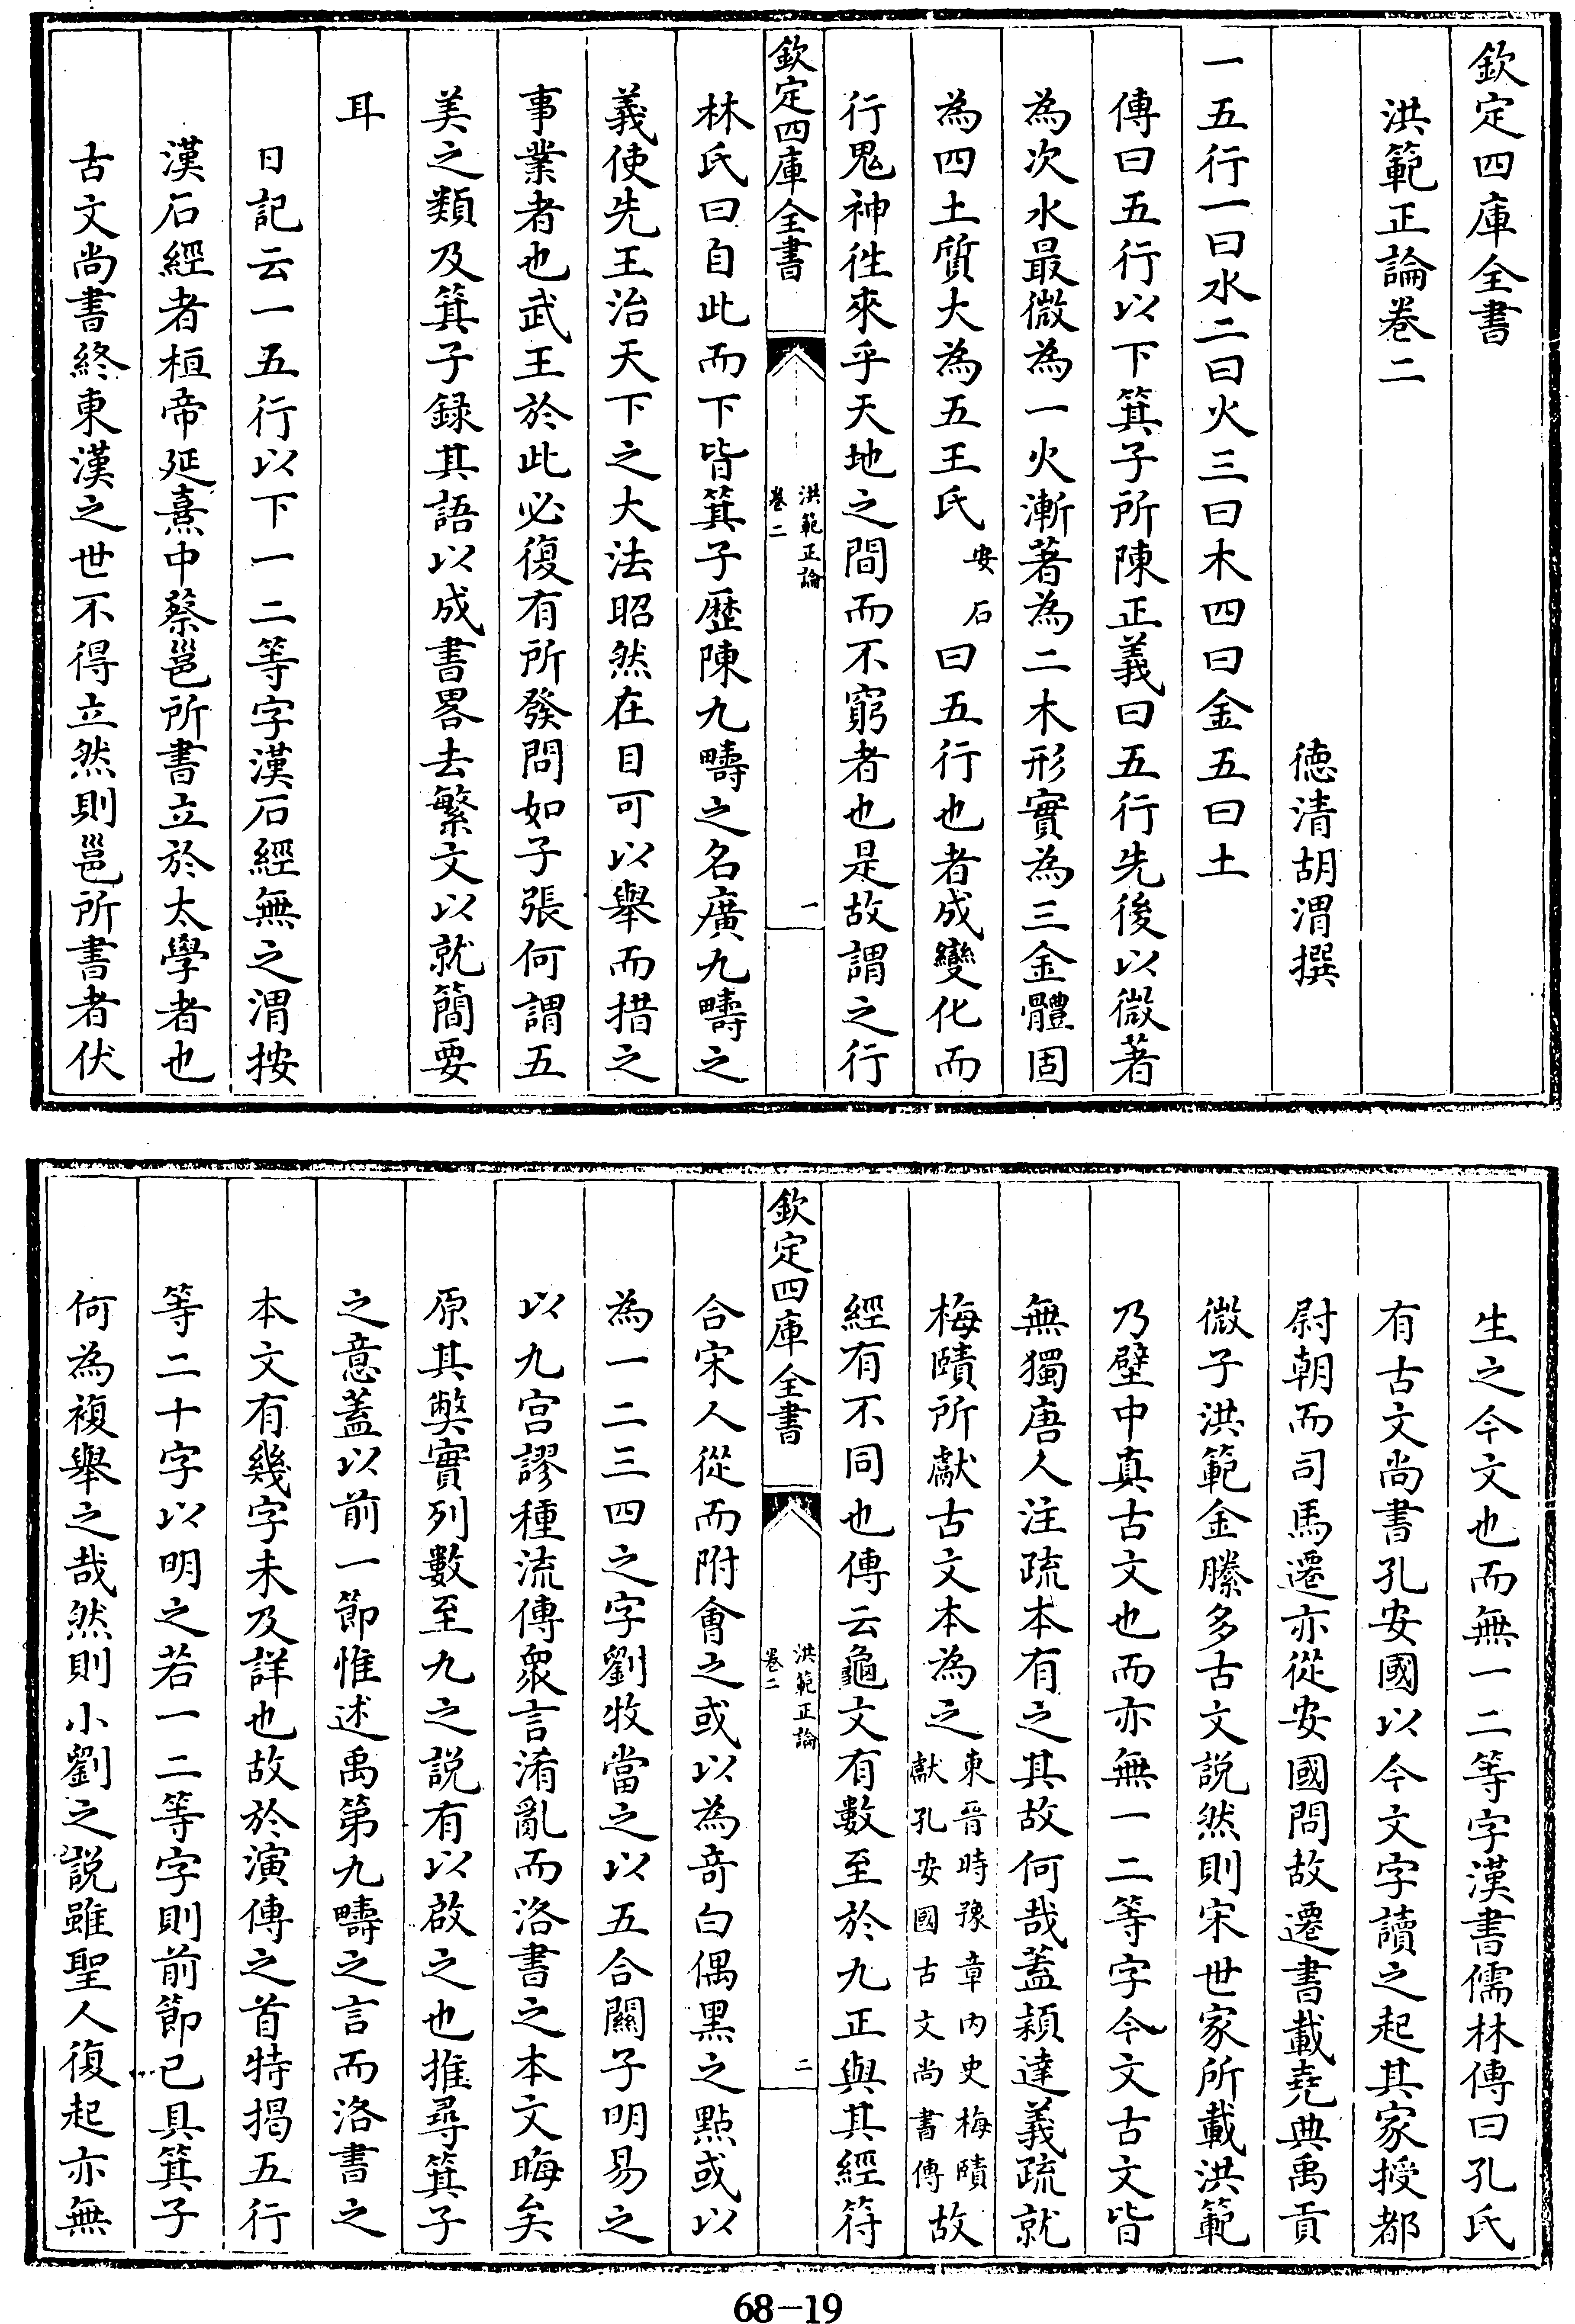 欽定四庫全書
洪範正論卷二
德清胡渭撰
一五行一曰水二曰火三曰木四曰金五曰土
傳曰五行以下箕子所陳正義曰五行先後以微著
為次水最微為一火漸著為二木形實為三金體固
為四土質大為五王氏安石曰五行也者成變化而
行鬼神往來乎天地之間而不窮者也是故謂之行
欽定四庫全書
洪範正論
卷二
一
林氏曰自此而下皆箕子歷陳九疇之名廣九疇之
義使先王治天下之大法昭然在目可以舉而措之
事業者也武王於此必復有所發問如子張何謂五
美之類及箕子録其語以成書畧去繁文以就簡要
耳
日記云一五行以下一二等字漢石經無之渭按
漢石經者桓帝延熹中蔡邕所書立於太學者也
古文尚書終東漢之世不得立然則邕所書者伏
生之今文也而無一二等字漢書儒林傳曰孔氏
有古文尚書孔安國以今文字讀之起其家授都
尉朝而司馬遷亦從安國問故遷書載堯典禹貢
微子洪範金縢多古文說然則宋世家所載洪範
乃壁中真古文也而亦無一二等字今文古文皆
無獨唐人注疏本有之其故何哉蓋穎達義疏就
梅賾所獻古文本為之東晉時豫章內史梅賾獻孔安國古文尚書傳故
經有不同也傳云龜文有數至於九正與其經符
欽定四庫全書
洪範正論
卷二
二
合宋人從而附會之或以為竒白偶黑之點或以
為一二三四之字劉牧當之以五合關子明易之
以九宮謬種流傳衆言淆亂而洛書之本文晦矣
原其弊實列數至九之説有以啟之也推尋箕子
之意蓋以前一節惟述禹第九疇之言而洛書之
本文有幾字未及詳也故於演傳之首特揭五行
等二十字以明之若一二等字則前節已具箕子
何為複舉之哉然則小劉之説雖聖人復起亦無
68-19